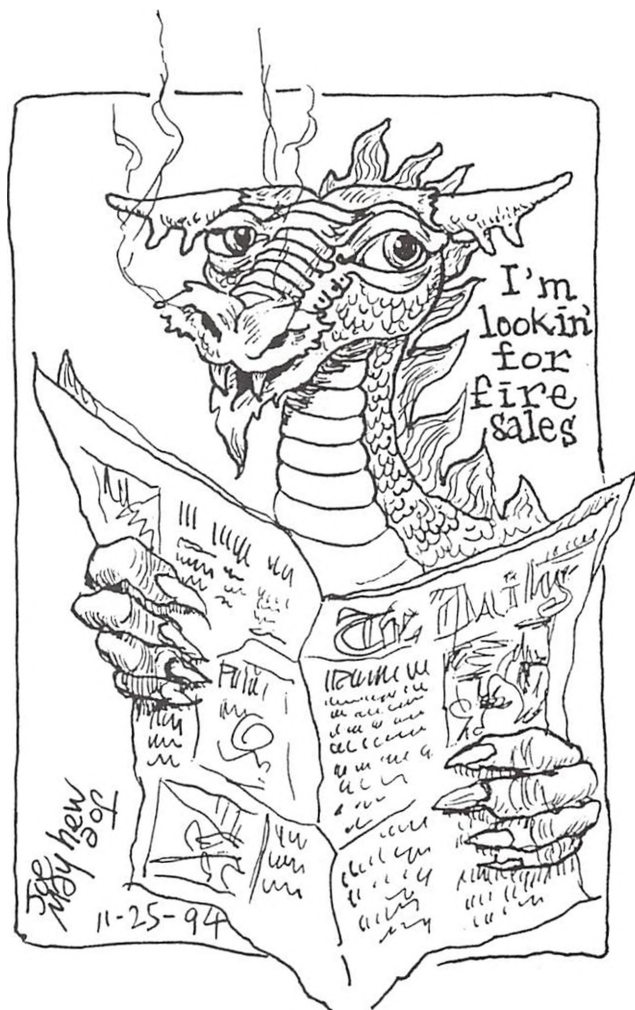 I'm
lookin'
for
fire
sales
The Daily
Joe
Mayhew
11-25-94